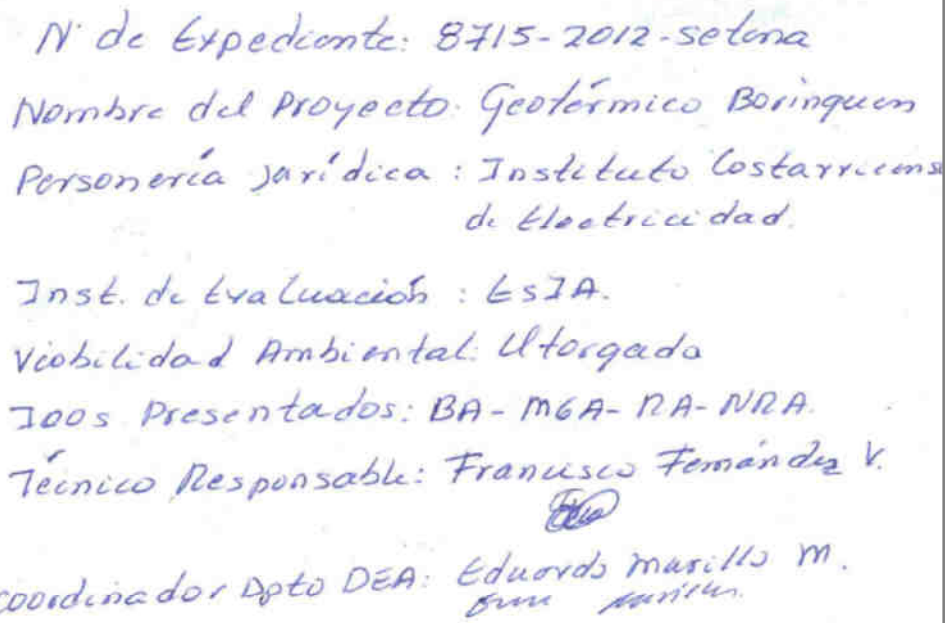 N° de Expediente: 8715-2012-setena
Nombre del Proyecto: Geotérmico Borinquen
Personería jurídica: Instituto Costarricens
de Electricidad.
Inst. de Evaluación: EsIA.
Viabilidad Ambiental: Otorgada
IOOs Presentados: BA-MGA-RA-NRA.
Técnico Responsable: Francisco Fernández V.
Coordinador Dpto DEA: Eduardo Murillo M.